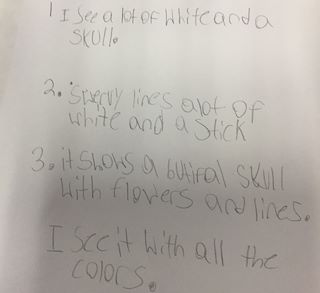 1 I see a lot of white and a
skull.
2. lines alot of
white and a stick
3. it shows a butiral skull
with flowers and lines.
I see it with all the
colors.